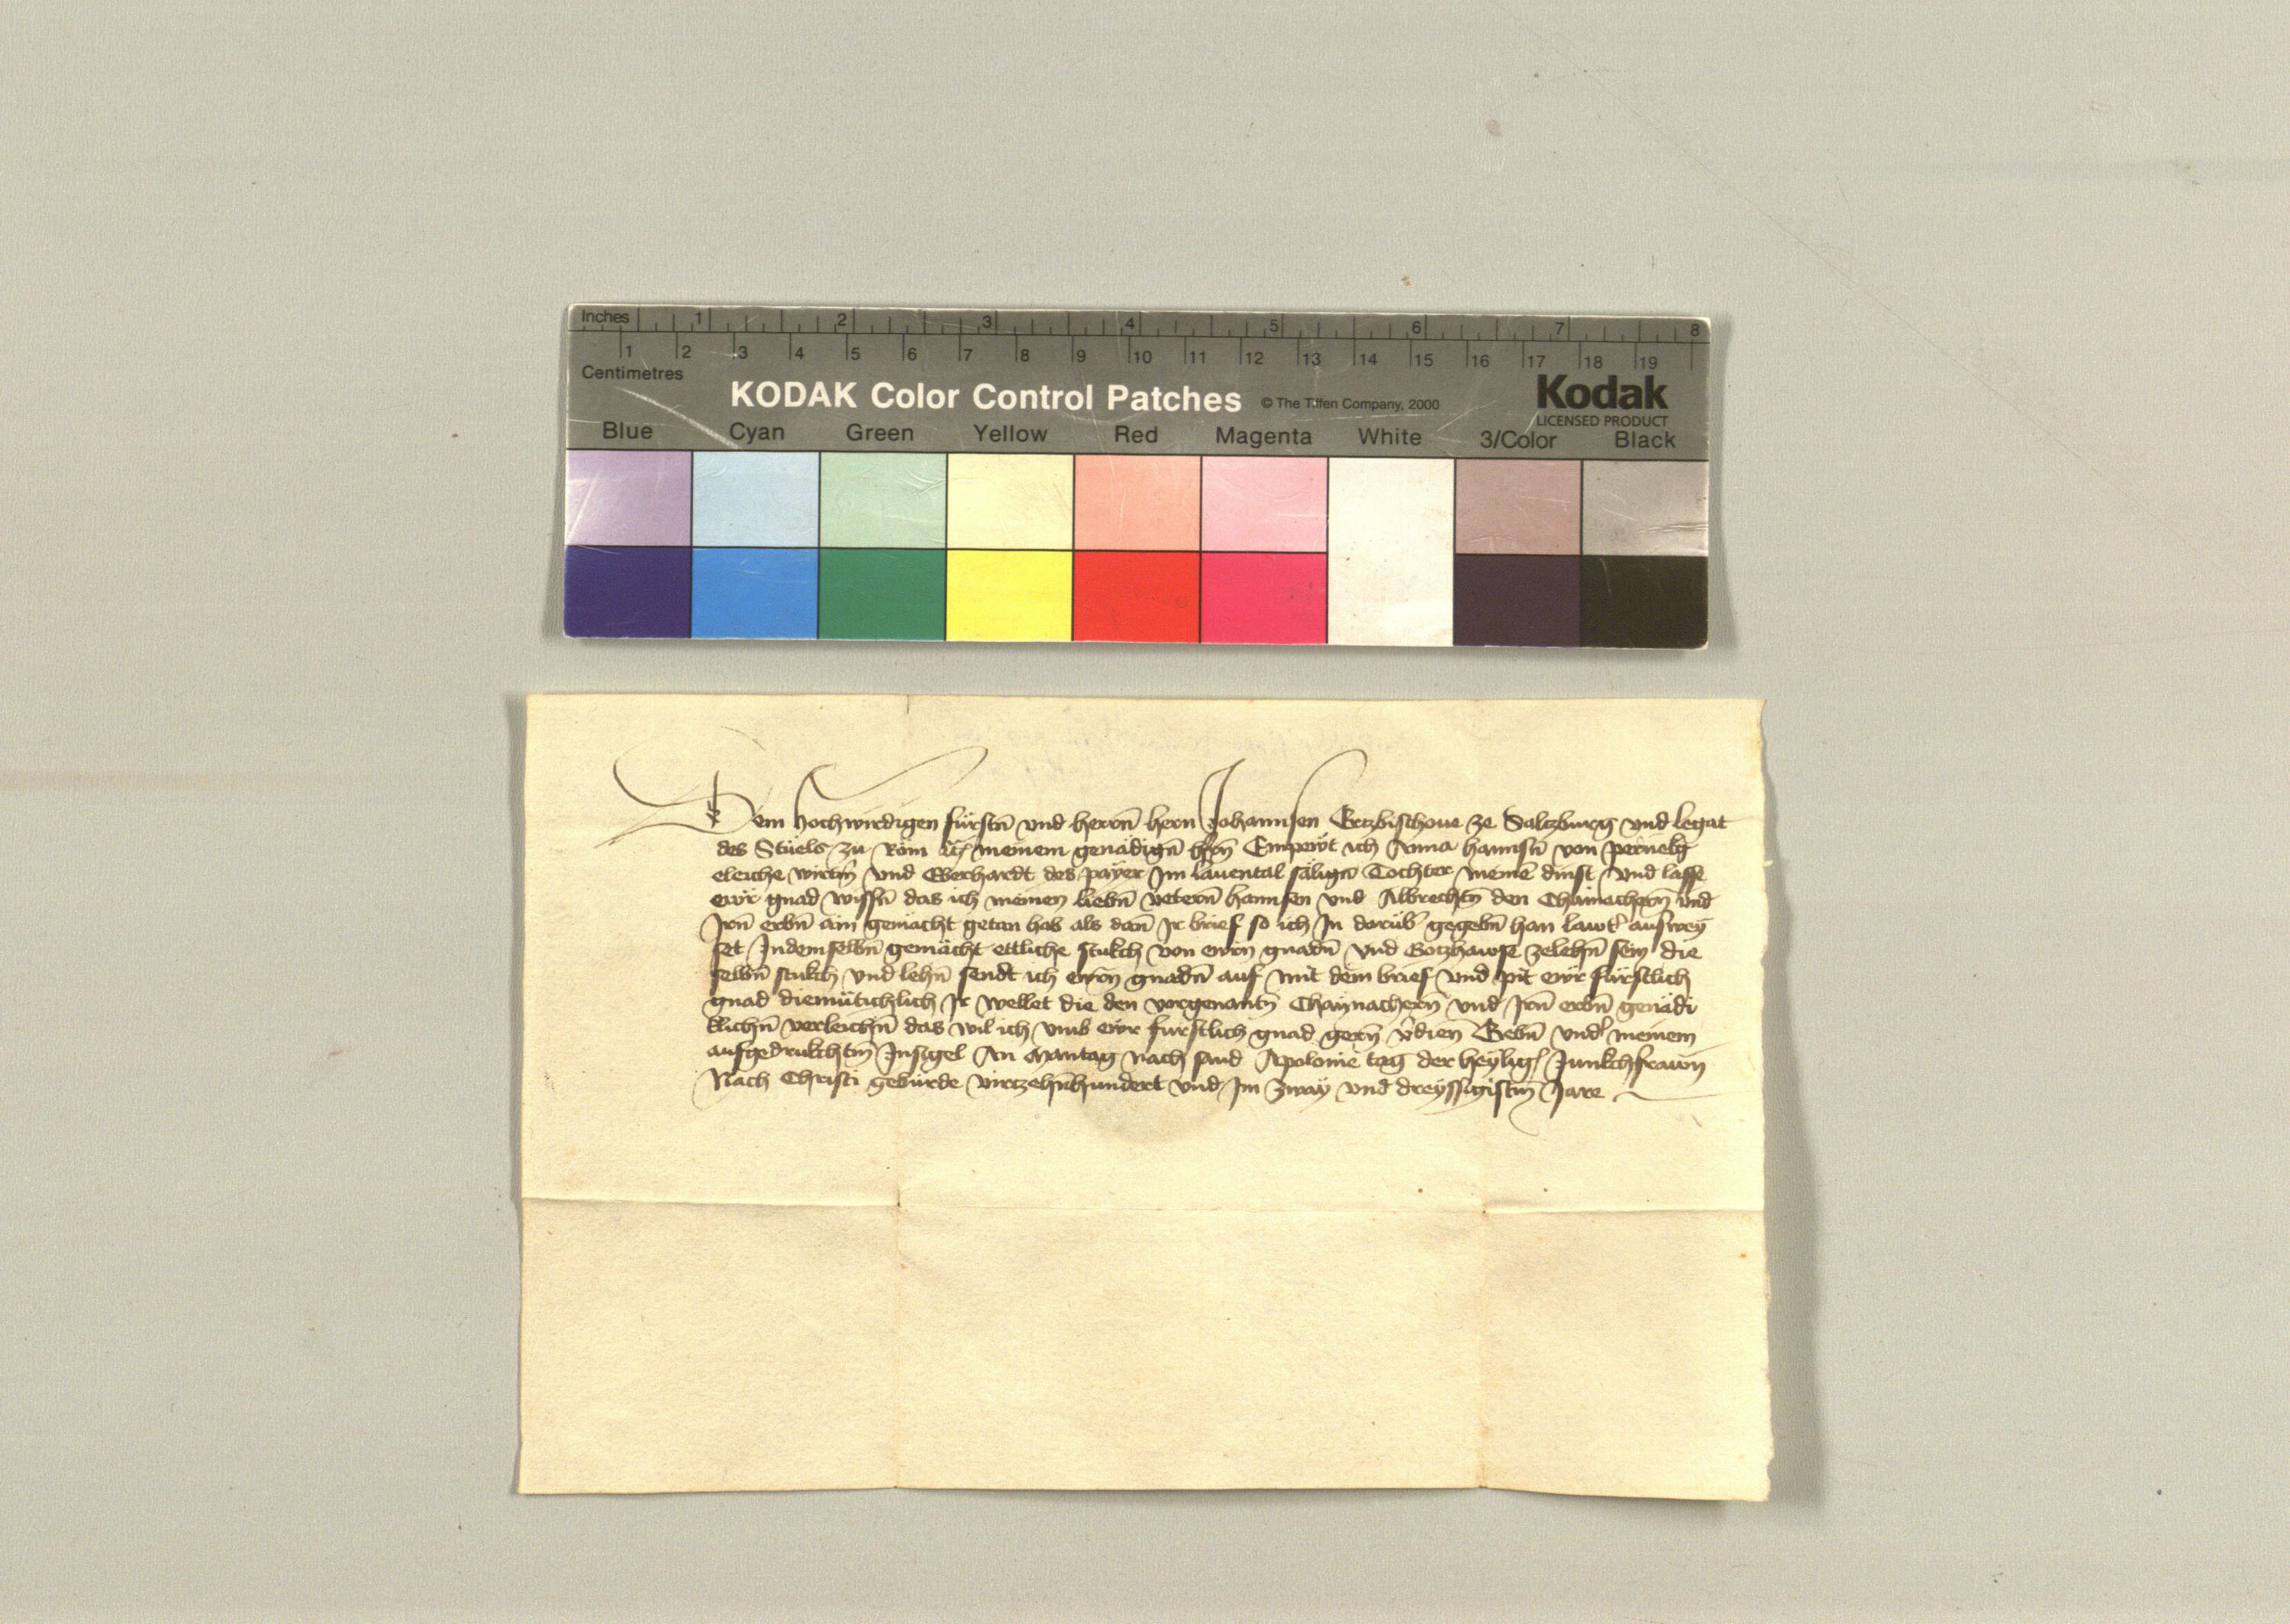 Inches 1 2 3 4 5 6 7 8
1 2 3 4 5 6 7 8 9 10 11 12 13 14 15 16 17 18 19
Centimetres
KODAK Color Control Patches © The Tiffen Company, 2000 Kodak
LICENSED PRODUCT
Blue Cyan Green Yellow Red Magenta White 3/Color Black
Dem hochwirdigen fürstn̄ vnd herrn̄ hern Johannsen Ertzbischoue ze Saltzburg vnd legat
des Stuels zu Röm meinem genädign̄ hrn̄ Empewt ich Anna hannsn̄ von pernekg
eleiche wirtin̄ vnd Eberhardt des payer Im lauental sälign̄ Tochter meinē dinst vnd lasse
ewr gnad wissn̄ das ich meinen liebn̄ vetern̄ hannsen vnd Albrechtn̄ den Chainachern̄ vnd
Irn̄ erbn̄ ain gemächt getan hab als dan̄ Ir brief so ich In darüb̄ gegebn̄ han lawt̄ ausway
set Indemselbn̄ gemächt ettliche stukch von ewrn̄ gnadn̄ vnd Gotzhawse zelehn̄ sein die
selbn̄ stukch vnd lehn̄ sendt ich ewrn̄ gnadn̄ auf mit dem brief vnd pit ewr fürstlich
gnad diemütichlich Ir wellet die den vorgenantn̄ Chaynachern̄ vnd Irn̄ erbn̄ genädi
klichn̄ verleichn̄ das wil ich vmb ewr fürstlich gnad gern̄ v̄dien Gebn̄ vnd̄ meinem
aufgedrukchtm̄ Insigel An Mantag nach sand Apolonie tag der heyliḡ Junkchfrawn̄
Nach Christi gebürde virtzehn̄hundert vnd Im zway vnd dreyssigistm̄ Jare